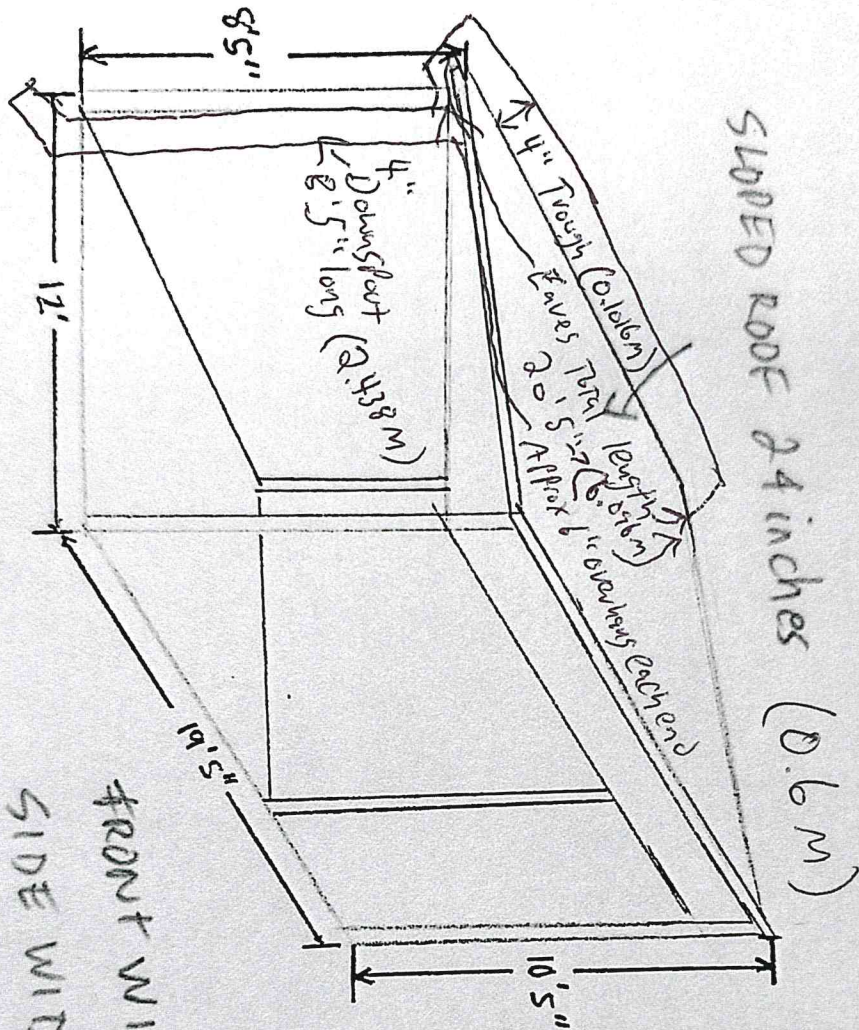 SLOPED ROOF 24 inches (0.6 M)
4" Trough (0.1016M)
Eaves Total length
20'5" → (6.096m)
Approx 6" overhang each end
8'5"
4"
Downspout
8'5" long (2.438M)
12'
19'5"
10'5"
FRONT WI
SIDE WID